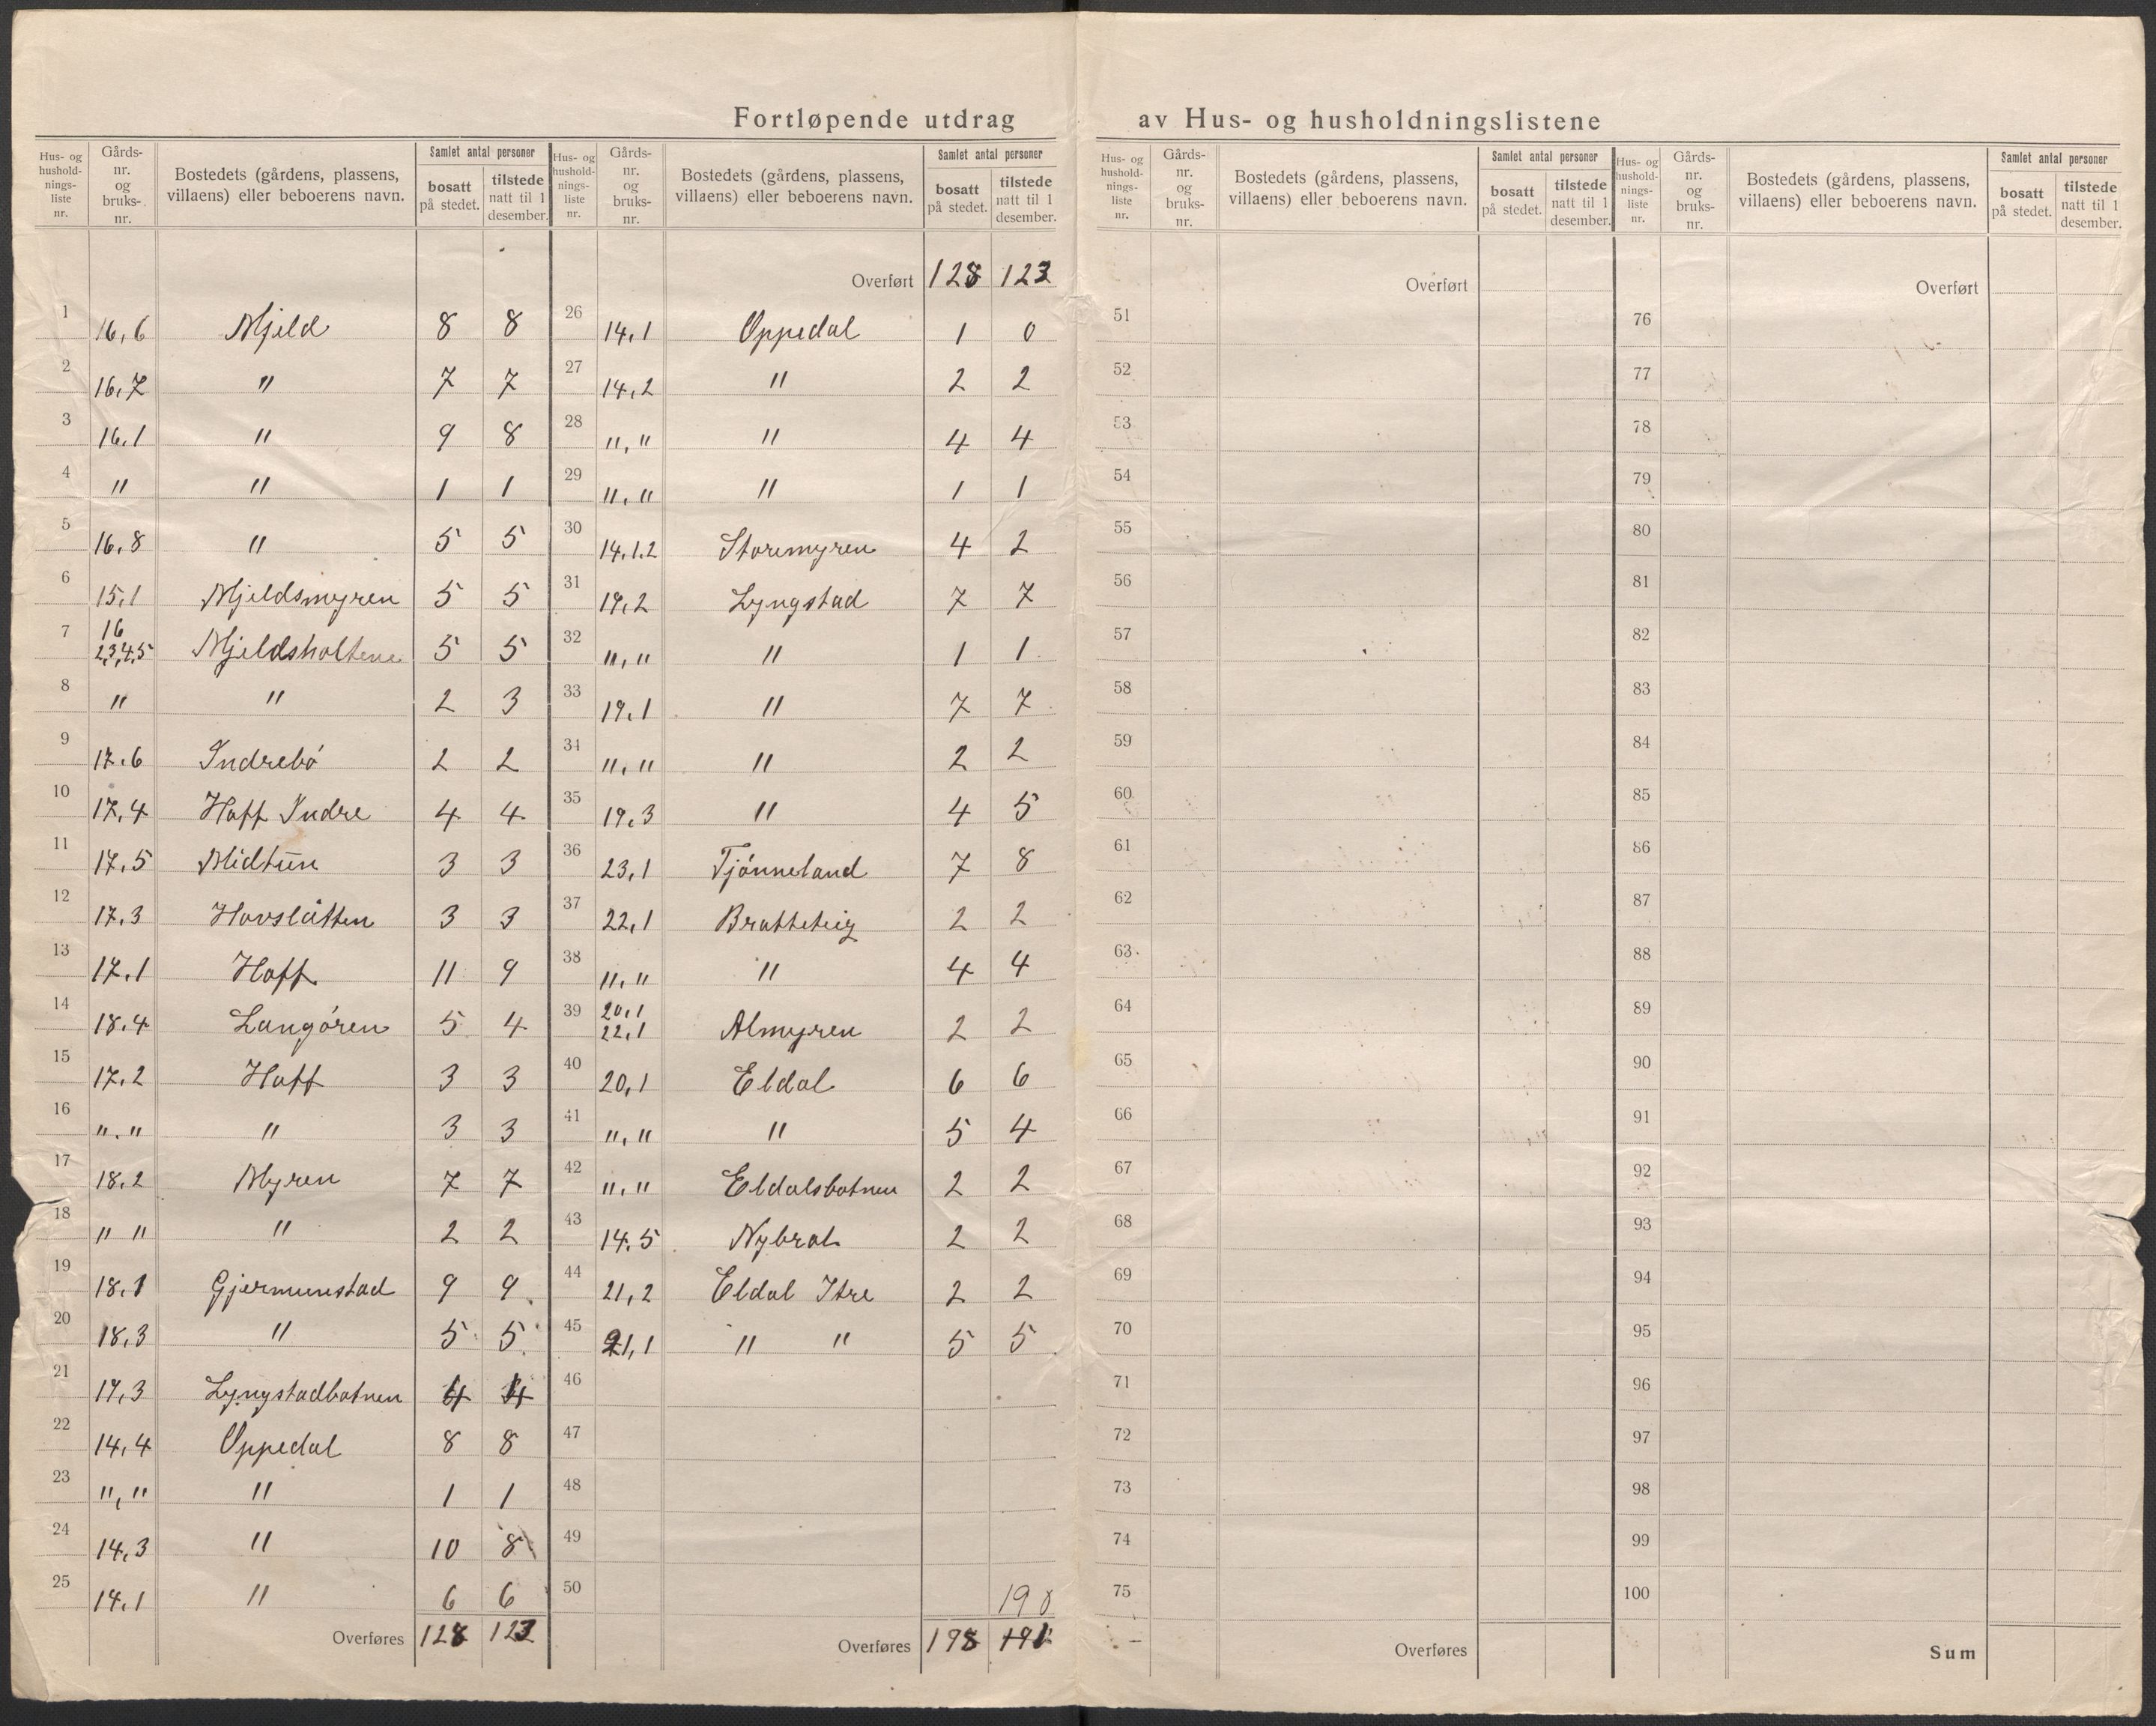 Fortløpende utdrag av Hus- og husholdningslistene
Hus- og husholdningsliste nr. Gårdsnr. og bruksnr. Bostedets (gårdens, plassens, villaens) eller beboerens navn. Samlet antal personer bosatt på stedet. tilstede natt til 1 desember.
1 16,6 Mjeld 8 8
2 16,7 " 7 7
3 16,1 " 9 8
4 " " 1 1
5 16,8 " 5 5
6 15,1 Mjeldsmyren 5 5
7 16 2,3,4,5 Mjeldsholtene 5 5
8 " " 2 3
9 17,6 Indrebø 2 2
10 17,4 Hoff Indre 4 4
11 17,5 Midtun 3 3
12 17,3 Hovslåtten 3 3
13 17,1 Hoff 11 9
14 18,4 Langøren 5 4
15 17,2 Hoff 3 3
16 ",," " 3 3
17 18,2 Myren 7 7
18 " " " 2 2
19 18,1 Gjermunstad 9 9
20 18,3 " 5 5
21 19,3 Lyngstadbotnen 4 4
22 14,4 Oppedal 8 8
23 "," " 1 1
24 14,3 " 10 8
25 14,1 " 6 6
Overføres 128 123
Hus- og husholdningsliste nr. Gårdsnr. og bruksnr. Bostedets (gårdens, plassens, villaens) eller beboerens navn. Samlet antal personer bosatt på stedet. tilstede natt til 1 desember.
Overført 128 123
26 14,1 Oppedal 1 0
27 14,2 " 2 2
28 "," " 4 4
29 "," " 1 1
30 14,1,2 Storemyren 4 2
31 19,2 Lyngstad 7 7
32 "," " 1 1
33 19,1 " 7 7
34 "," " 2 2
35 19,3 " 4 5
36 23,1 Tjønneland 7 8
37 22,1 Bratteteig 2 2
38 "," " 4 4
39 20,1 22,1 Almyren 2 2
40 20,1 Eldal 6 6
41 "," " 5 4
42 "," Eldalsbotnen 2 2
43 14,5 Nybrot 2 2
44 21,2 Eldal Itre 2 2
45 21,1 " " 5 5
46
47
48
49
50 190
Overføres 198 191
Hus- og husholdningsliste nr. Gårdsnr. og bruksnr. Bostedets (gårdens, plassens, villaens) eller beboerens navn. Samlet antal personer bosatt på stedet. tilstede natt til 1 desember.
Overført
51
52
53
54
55
56
57
58
59
60
61
62
63
64
65
66
67
68
69
70
71
72
73
74
75
Overføres
Hus- og husholdningsliste nr. Gårdsnr. og bruksnr. Bostedets (gårdens, plassens, villaens) eller beboerens navn. Samlet antal personer bosatt på stedet. tilstede natt til 1 desember.
Overført
76
77
78
79
80
81
82
83
84
85
86
87
88
89
90
91
92
93
94
95
96
97
98
99
100
Sum